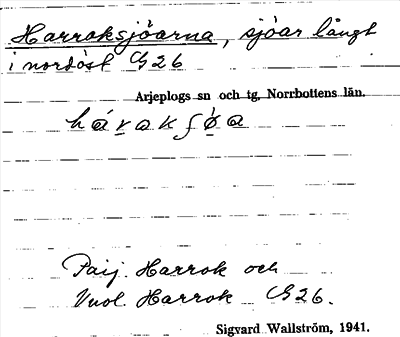 Harroksjöarna, sjöar långt
i nordöst G26
Arjeplogs sn och tg, Norrbottens län.
Paij. Harrok och
Vuol. Harrok G26.
Sigvard Wallström, 1941.